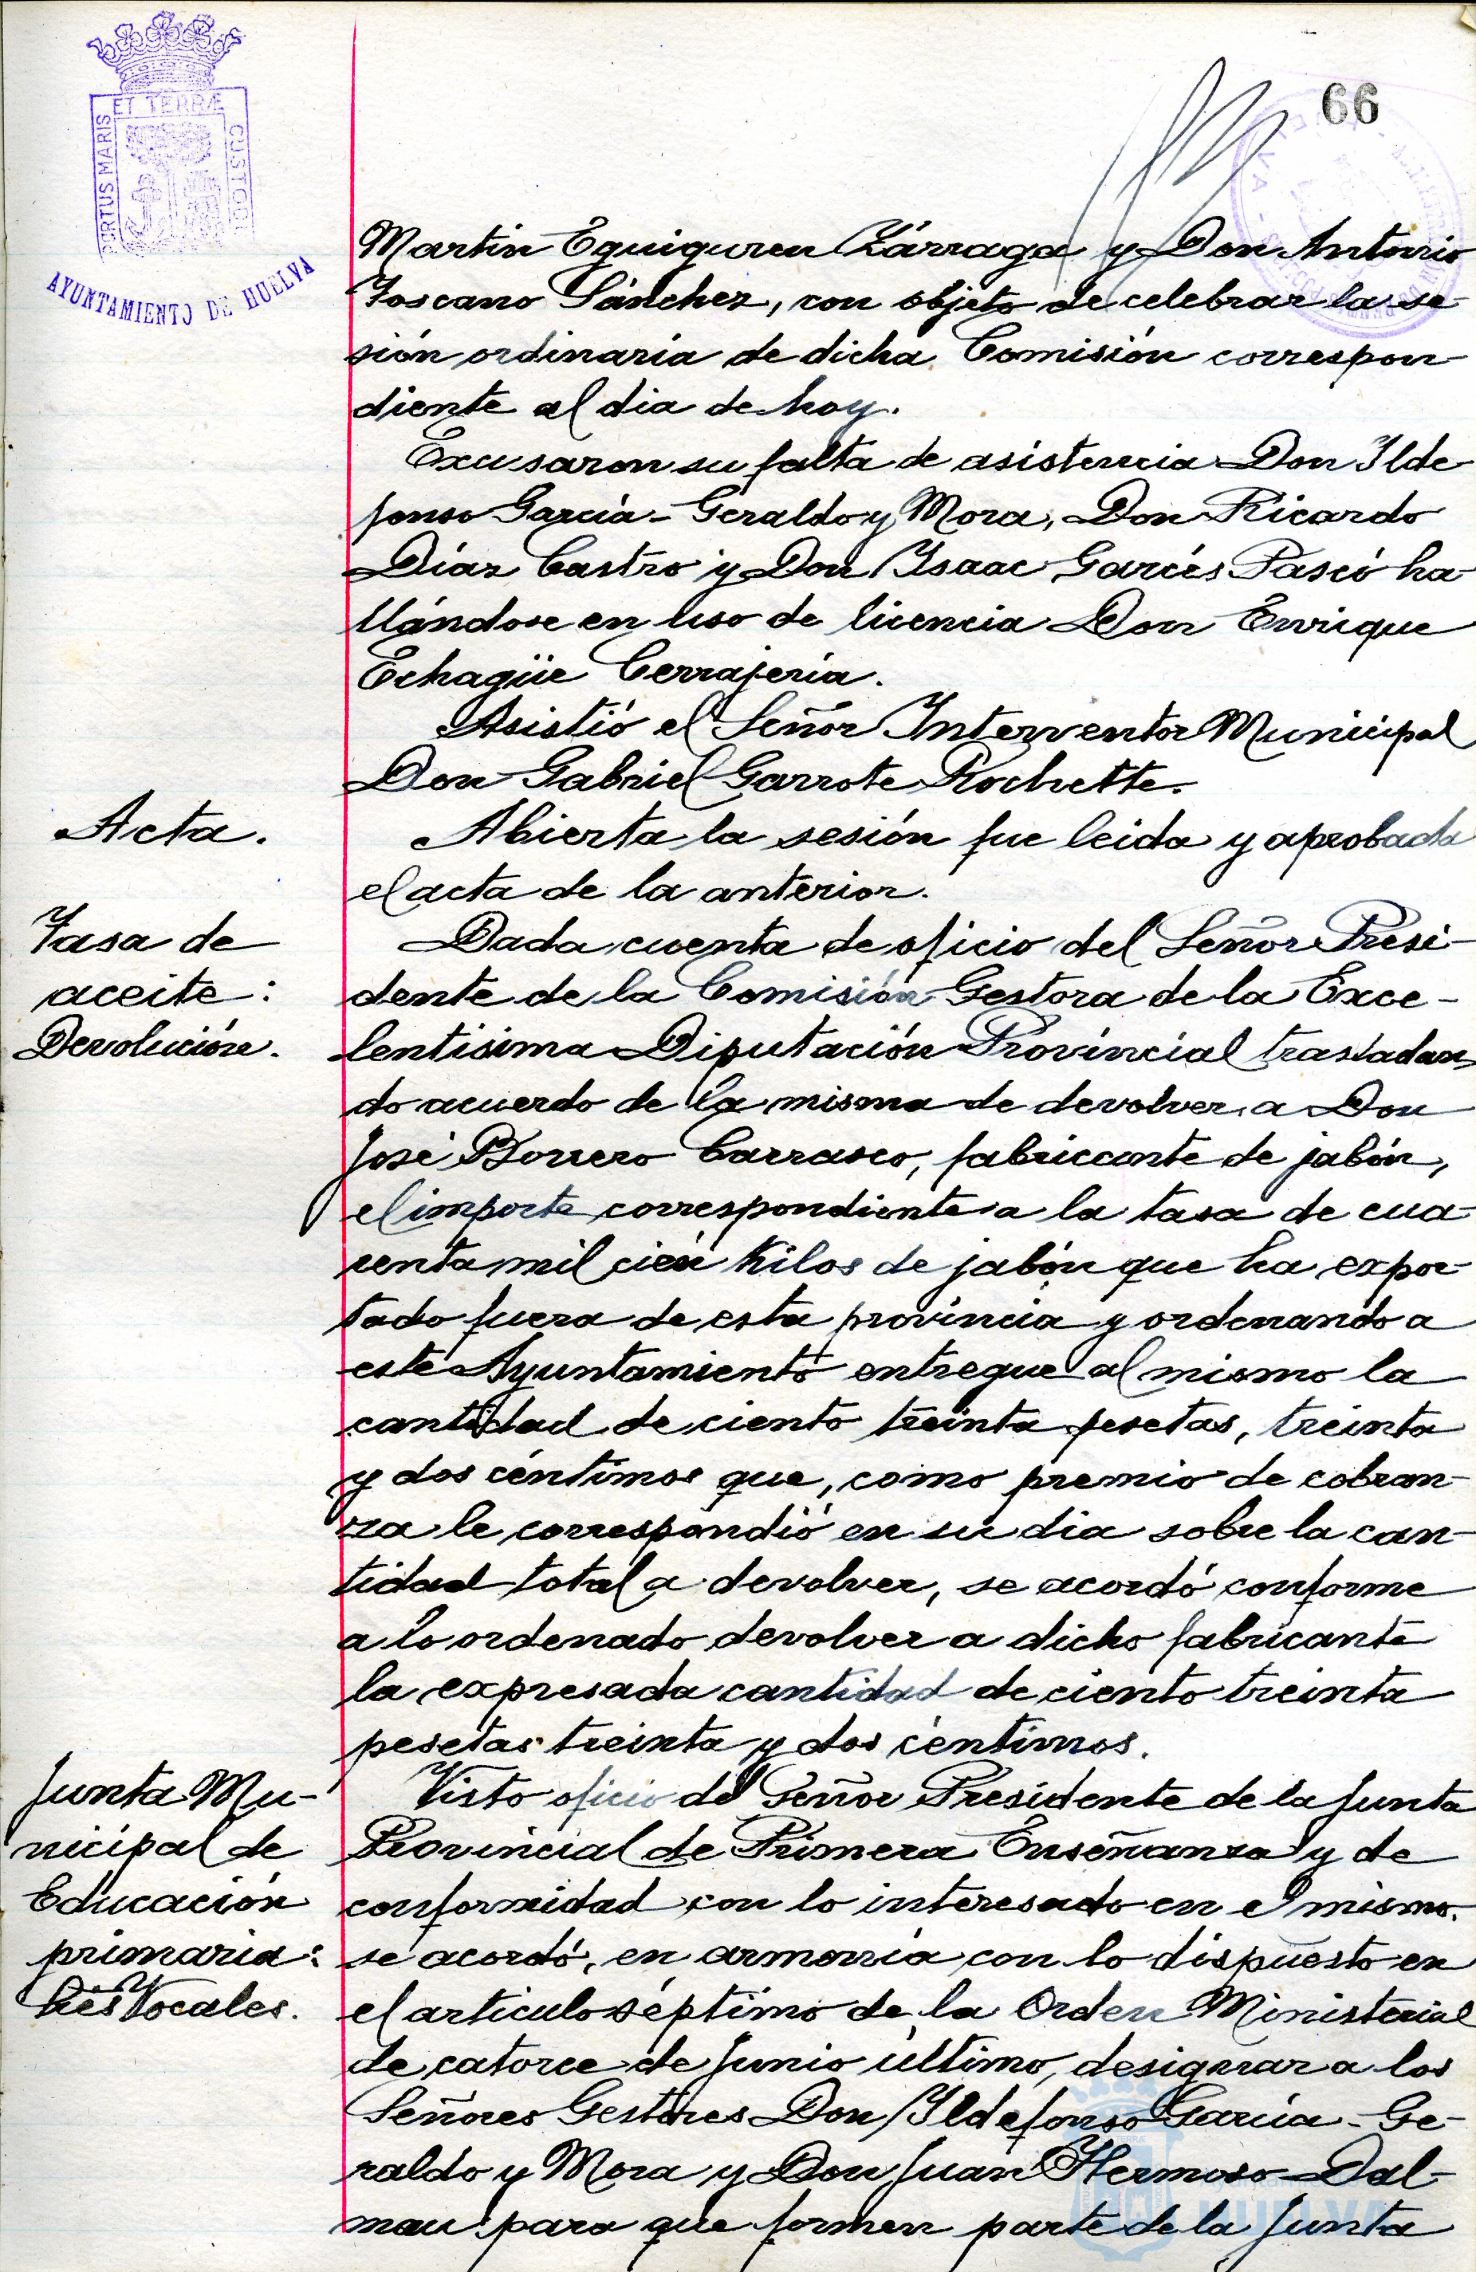 66
PORTUS MARIS ET TERRÆ CUSTODI
AYUNTAMIENTO DE HUELVA
Martin Eguiguren Zárraga y Don Antonio
Toscano Sánchez, con objeto de celebrar la se-
sión ordinaria de dicha Comisión correspon-
diente al dia de hoy.
Excusaron su falta de asistencia Don Ilde
fonso García-Geraldo y Mora, Don Ricardo
Díaz Castro y Don Isaac Garcés Pascó ha
llándose en uso de licencia Don Enrique
Echagüe Cerrajería.
Asistió el Señor Interventor Municipal
Don Gabriel Garrote Rochette.
Acta.
Abierta la sesión fue leida y aprobada
el acta de la anterior.
Tasa de
aceite:
Devolución.
Dada cuenta de oficio del Señor Presi-
dente de la Comisión Gestora de la Exce-
lentísima Diputación Provincial trasladan
do acuerdo de la misma de devolver a Don
José Borrero Carrasco, fabricante de jabón,
el importe correspondiente a la tasa de cua-
renta mil cien Kilos de jabón que ha expor-
tado fuera de esta provincia y ordenando a
este Ayuntamiento entregue al mismo la
cantidad de ciento treinta pesetas, treinta
y dos céntimos que, como premio de cobran-
za le correspondió en su dia sobre la can-
tidad total a devolver, se acordó conforme
a lo ordenado devolver a dicho fabricante
la expresada cantidad de ciento treinta
pesetas treinta y dos céntimos.
Junta Mu-
nicipal de
Educación
primaria:
Vocales.
Visto oficio del Señor Presidente de la Junta
Provincial de Primera Enseñanza y de
conformidad con lo interesado en el mismo.
se acordó, en armonía con lo dispuesto en
el articulo séptimo de la Orden Ministerial
de catorce de Junio último, designar a los
Señores Gestores Don Ildefonso García-Ge-
raldo y Mora y Don Juan Hermoso Dal-
mau para que formen parte de la Junta
HUELVA